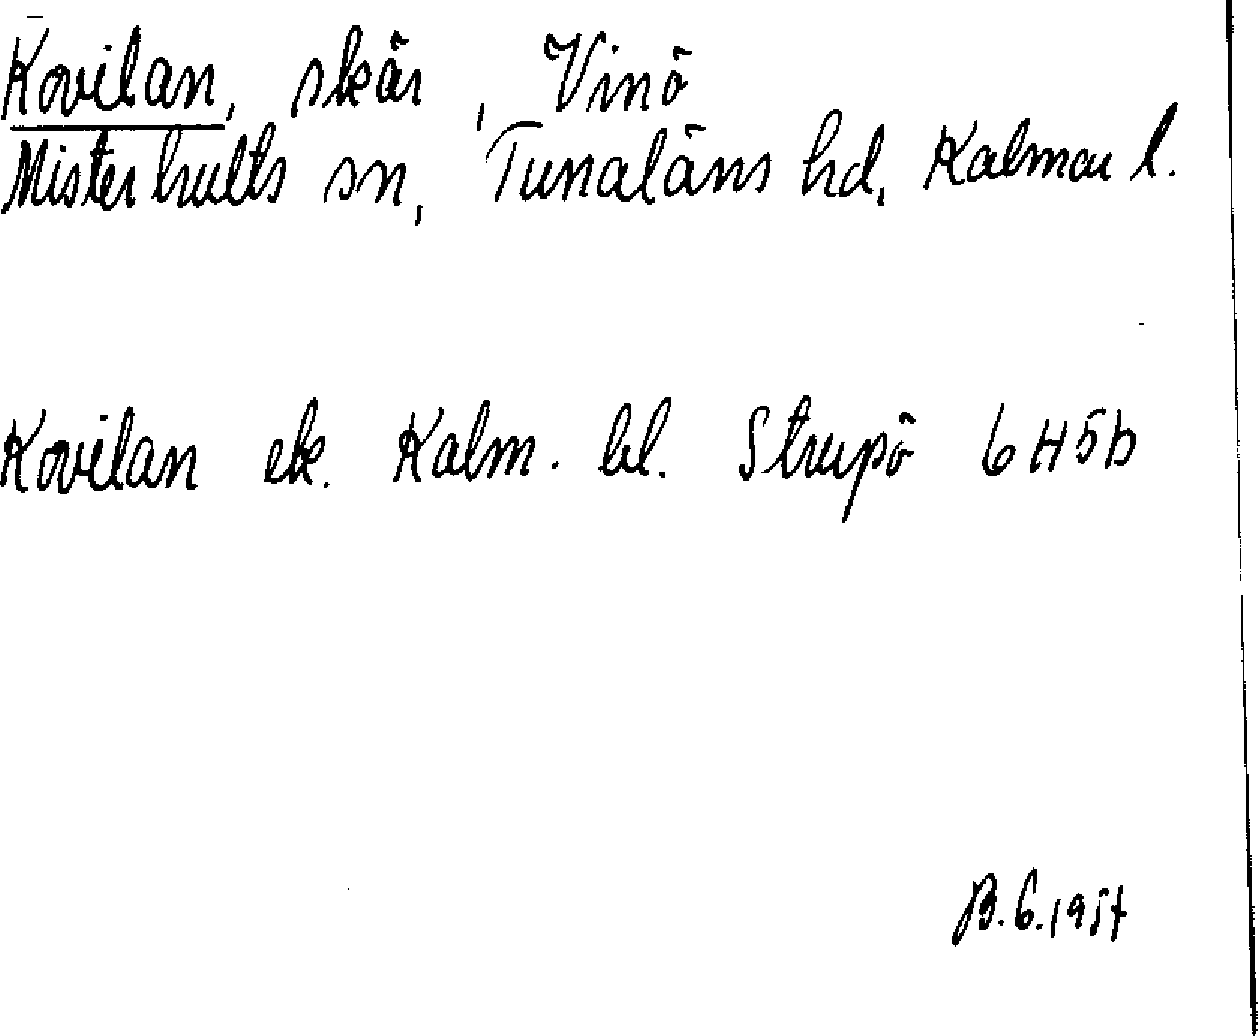 Kovilan, skär, Vinö
Misterhults sn, Tunaläns hd, Kalmar l.
Kovilan ek. Kalm. bl. Strupö 6H5b
B.G.1957